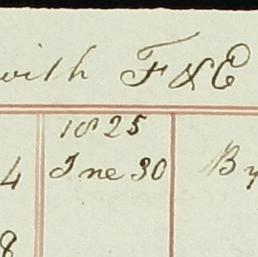 with F & E
1825
4 Jne 30 By
8